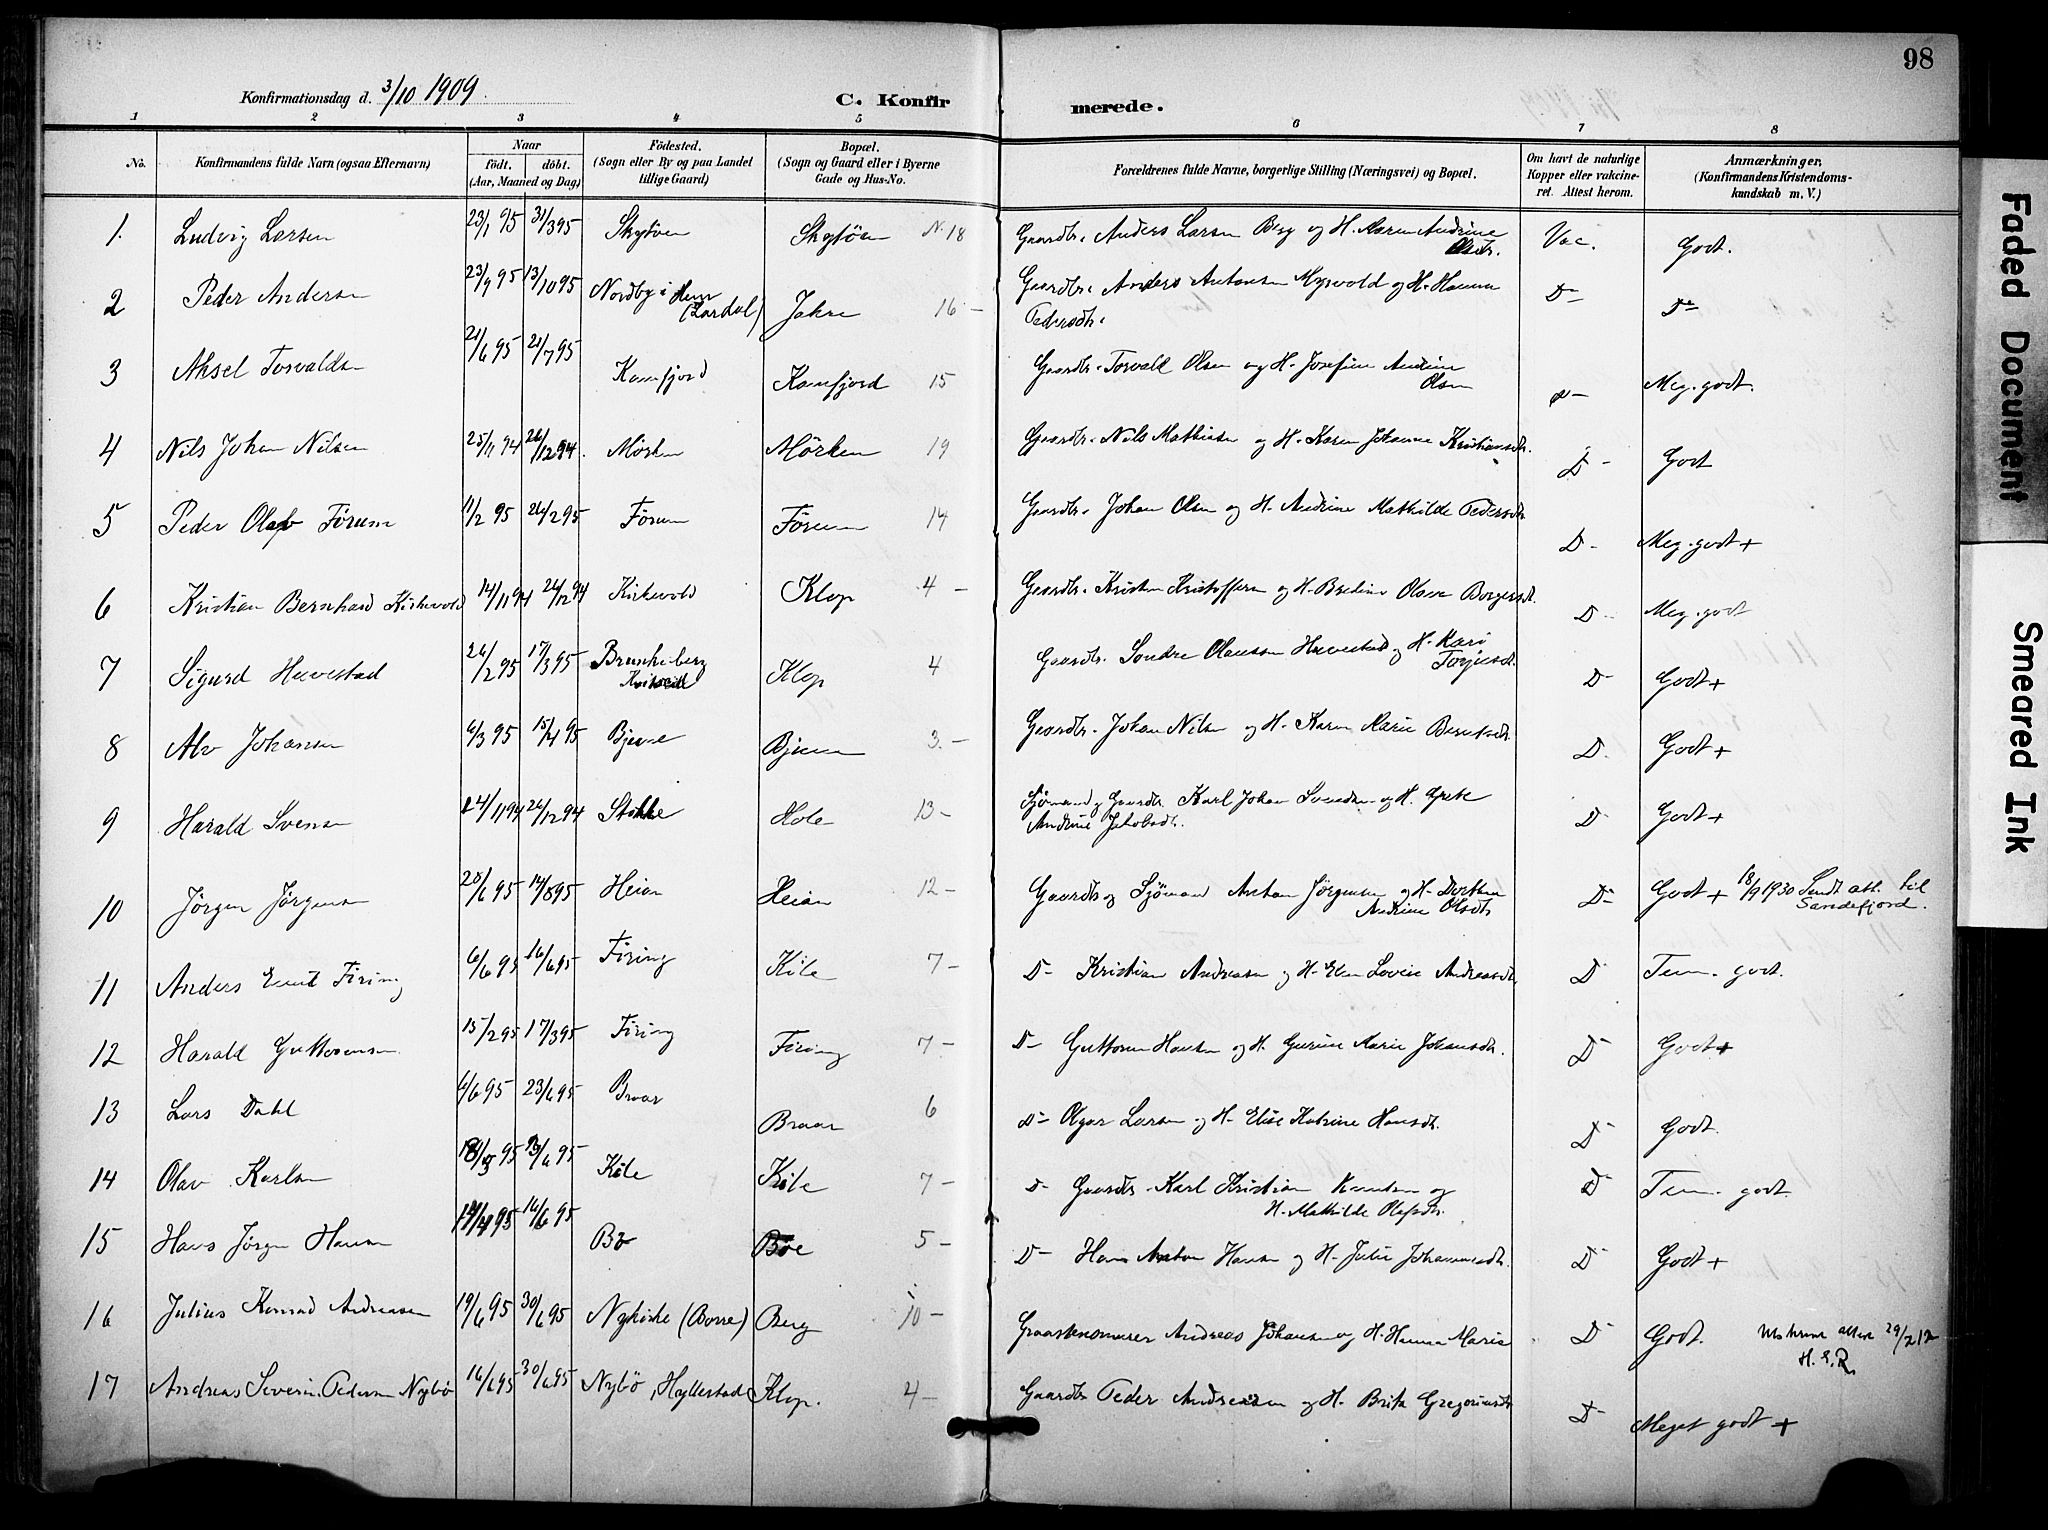 98
Konfirmationsdag d. 3/10 1909.
C. Konfirmerede.
1 2 3 4 5 6 7 8
No.
Konfirmandens fulde Navn (ogsaa Efternavn)
Naar
födt. döbt.
(Aar, Maaned og Dag)
Födested.
(Sogn eller By og paa Landet
tillige Gaard)
Bopæl.
(Sogn og Gaard eller i Byerne
Gade og Hus-No.
Forældrenes fulde Navne, borgerlige Stilling (Næringsvei) og Bopæl.
Om havt de naturlige
Kopper eller vakcine-
ret. Attest herom.
Anmærkninger,
(Konfirmandens Kristendoms-
kundskab m. V.)
1. Ludvig Larsen 23/1 95 31/3 95 18 Gaardbr. Anders Larsen Berg og H. Karen Andrine
Olsdtr. Vac. Godt.
2 Peder Andersen 23/9 95 13/10 95 Nordby i Hem
(Lardal) Jahre 16 - Gaardbr. Anders Antonsen Myrvold og H. Hanna
Pedersdtr. D- D-
3 Aksel Torvaldsen 21/6 95 21/7 95 Kamfjord Kamfjord 15 Gaardbr. Torvald Olsen og H. Josefine Andrine
Olsen D- Meg. godt.
4 Nils Johan Nilsen 25/11 94 26/12 94. Mørken Mørken 19 Gaardbr. Nils Mathisen og H. Karen Johanne Kristiansdtr. D- Godt
5 Peder Olav Førum 11/2 95 24/2 95 Førum Førum 14 Gaardbr. Johan Olsen og H. Andrine Mathilde Pedersdtr. D- Meg. godt +
6 Kristian Bernhard Kirkevold 14/11 94 26/12 94 Kirkevold Klop 4 - Gaardbr. Kristen Kristoffersen og H. Olava Borgersdt. D- Meg. godt
7 Sigurd Hævestad 26/2 95 17/3 95 Brunkeberg
Kviteseid Klop 4 Gaardbr. Sondre Olavssen Hævestad og H. Kari
Torjusdt. D- Godt +
8 Alv Johansen 6/3 95 15/4 95 Bjerne 3 - Gaardbr. Johan Nilsen og H. Karen Marie Berntsdt. D. Godt +
9 Harald Svensen 24/11 94 26/12 94 Stokke Hole 13 - Sjømand og Gaardbr. Karl Johan Svendsen og H. Grete
Andrine Jakobsdtr. D- Godt +
10 Jørgen Jørgensen 25/6 95 14/8 95 Heian Heian 12 - Gaardbr og Sjømand Anton Jørgensen og H. Dorthea
Andrine Olsdtr. D- Godt + 18/9 1930 Sendt att. til
Sandefjord.
11 Anders Firing 6/6 95 16/6 95 Firing Kile 7 - D- Kristian Andreasen og H. Elen Lovise Andreasdt. D- Tem. godt.
12 Harald Guttormsen 15/2 95 17/3 95 Firing Firing 7 - D- Guttorm Hansen og H. Gurine Marie Johansdt. D- Godt +
13 Lars Dahl 6/6 95 23/6 95 Braar Braar 6 D- Olgar Larsen og H. Elise Katrine Hansdt. D- Godt.
14 Olav Karlsen Kile Kile 7 - D- Gaardbr. Karl Kristian Knutsen og
H. Mathilde Olafsdtr. D- Tem. godt.
15 Hans Jørgen Hansen 14/4 95 16/6 95 Bø Bøe 5 - D- Hans Anton Hansen og H. Julie Johannesdt. D- Godt +
16 Julius Konrad Andreasen 19/6 95 30/6 95 Nykirke (Borre) Berg 10 - Graastensmurer Andreas Johansen og H. Hanna Marie D- Godt. Utskreve attest 29/2 12
H. E. R.
17 Andreas Severin Pedersen Nybø 16/6 95 30/6 95 Nybø, Hyllestad Klop. 4 - Gaardbr. Peder Andreassen og H. Brita Gregoriusdt. D- Meget godt +
Faded Document
Smeared Ink